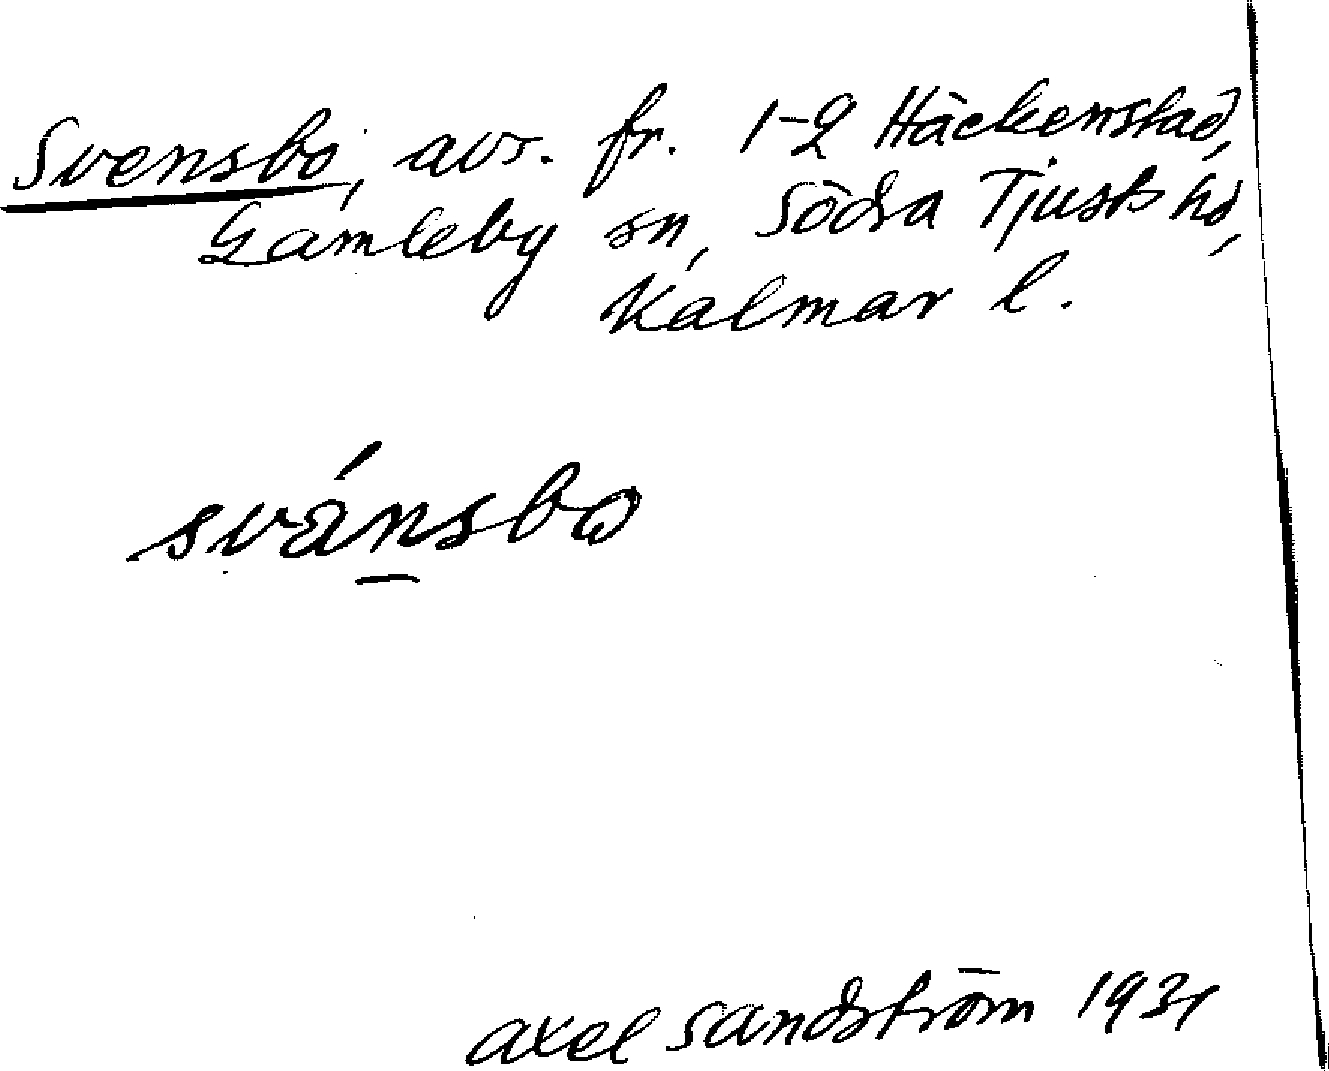 Svensbo, avs. fr. 1-2 Häckenstad,
Gamleby sn, Södra Tjusts hd,
Kalmar l.
svánsbo
Axel Sandström 1931